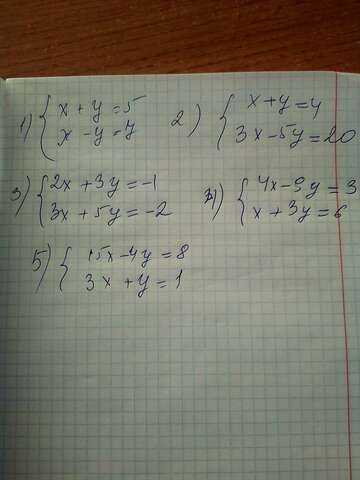 1) { x + y = 5
x - y = 7
2) { x + y = 4
3x - 5y = 20
3) { 2x + 3y = -1
3x + 5y = -2
4) { 4x - 9y = 3
x + 3y = 6
5) { 15x - 4y = 8
3x + y = 1